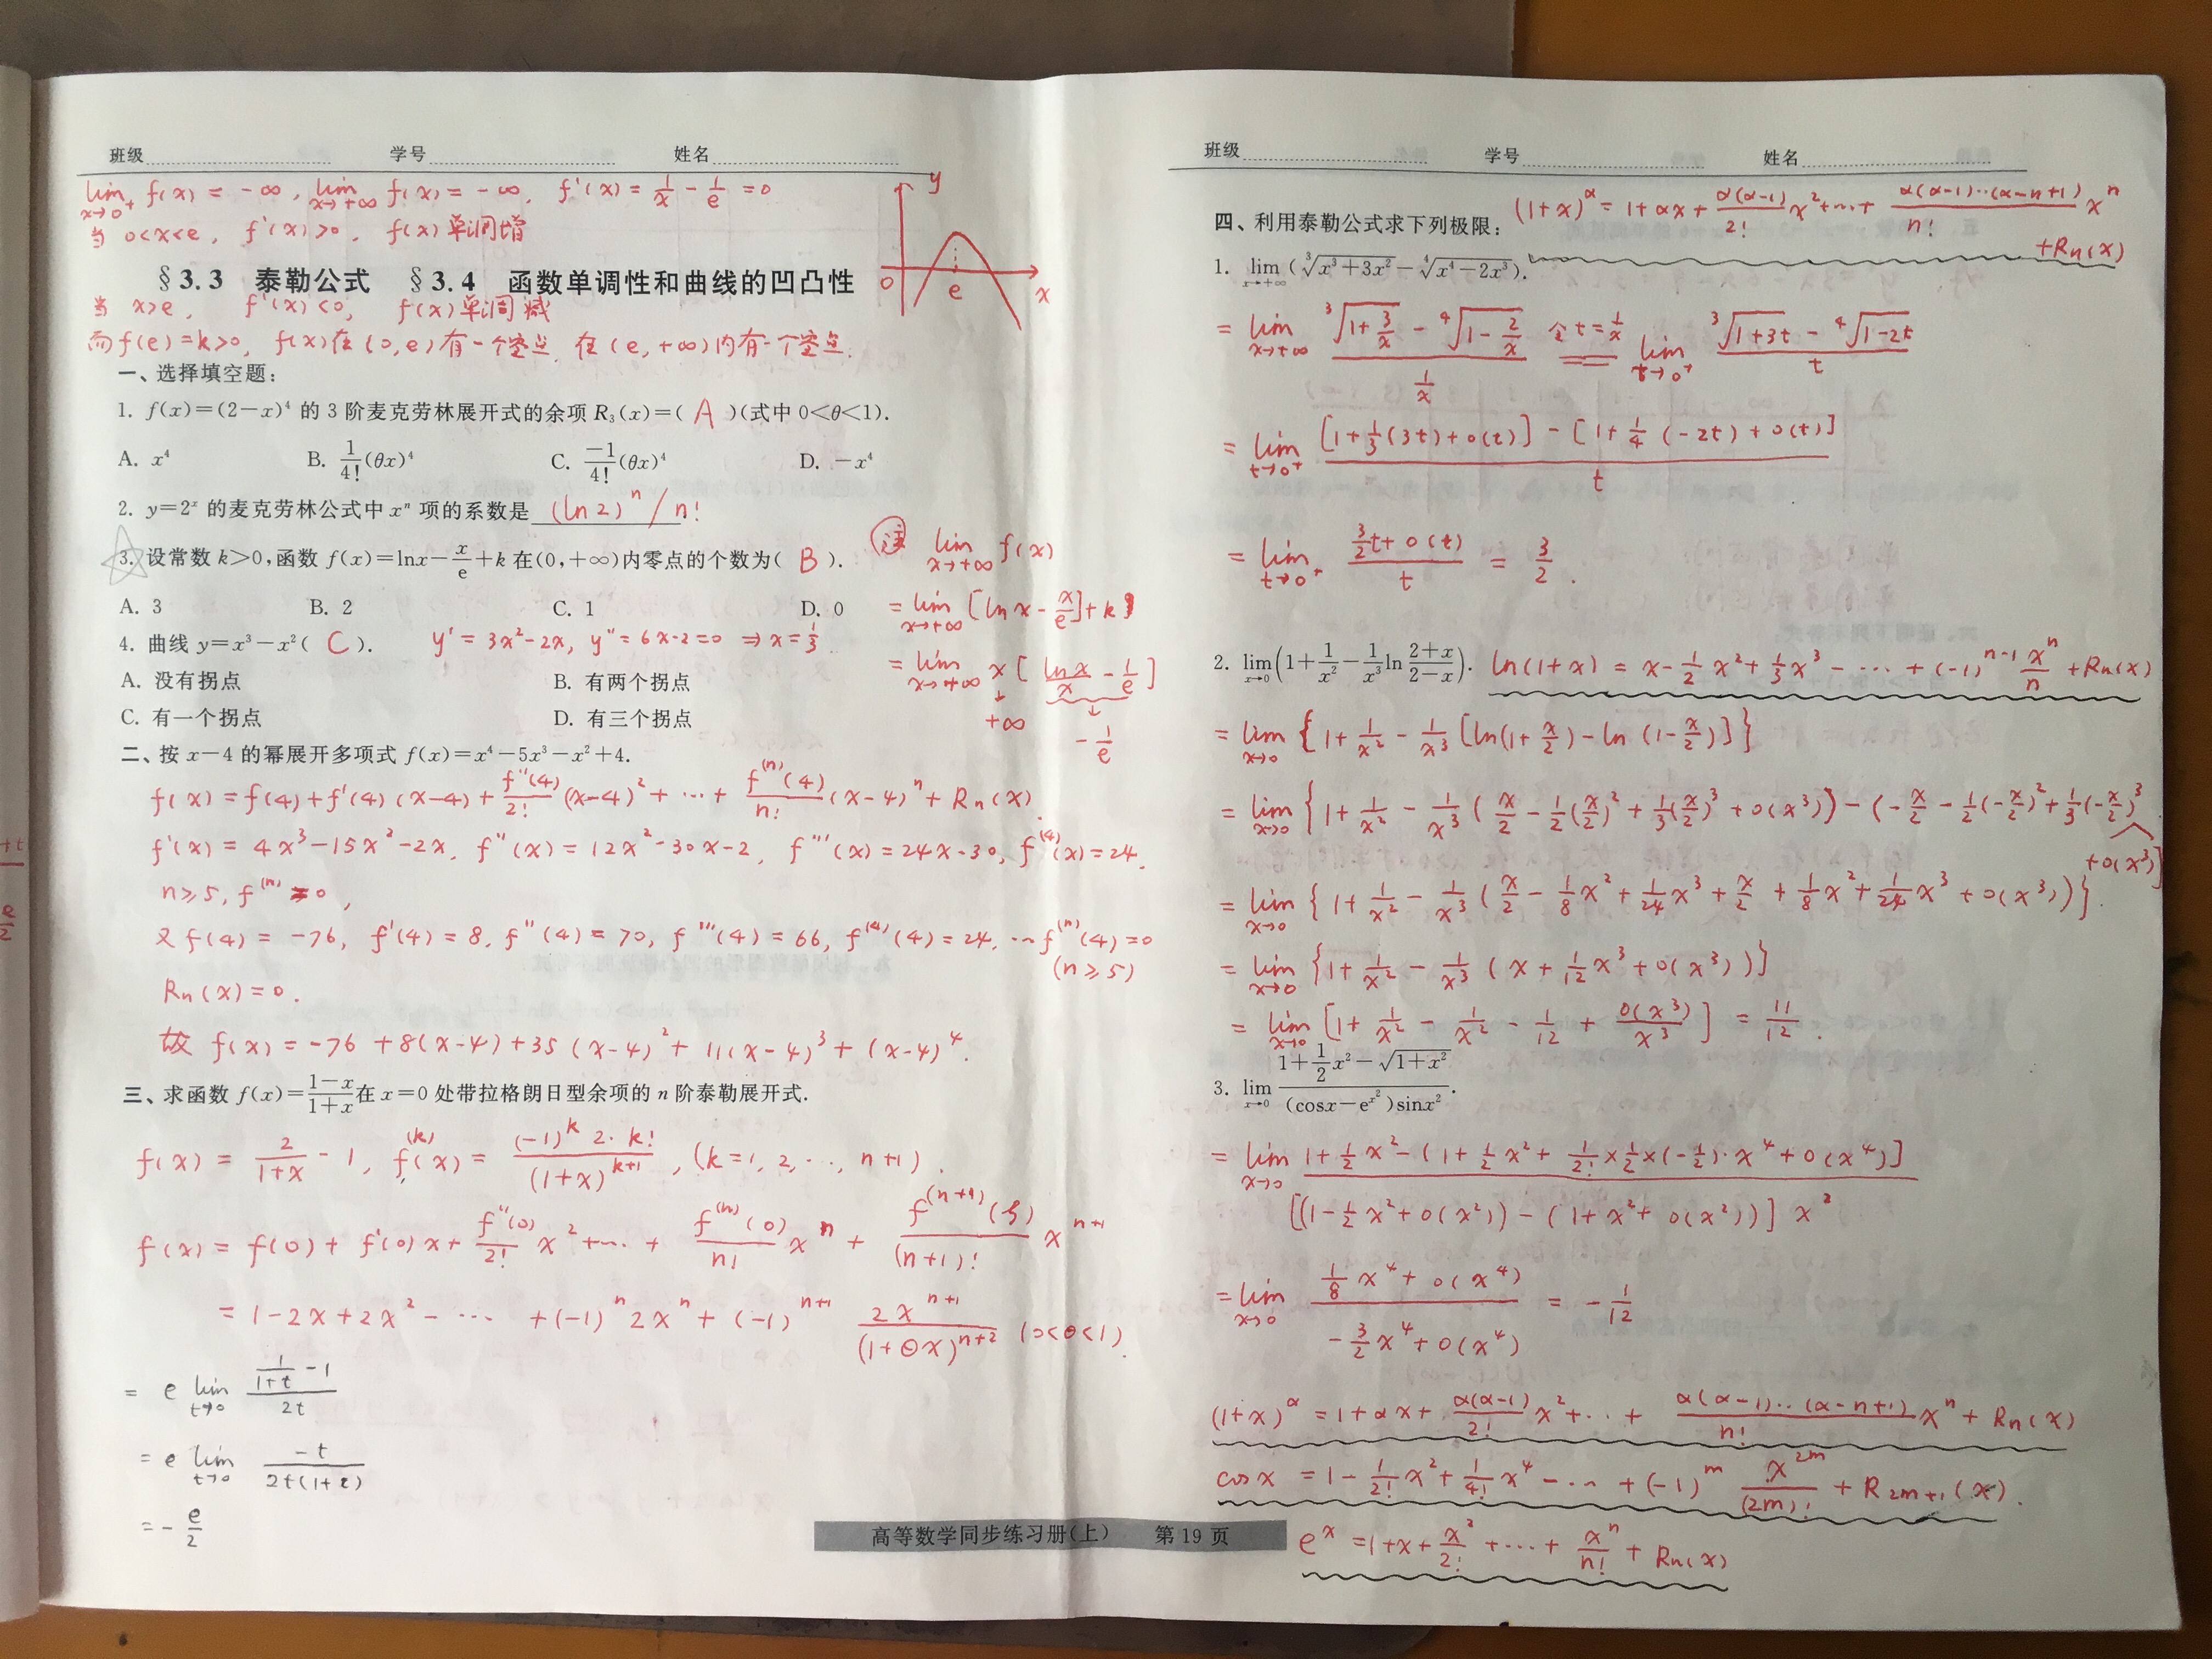 班级 学号 姓名
lim x→0⁺ f(x) = -∞, lim x→+∞ f(x) = -∞, f'(x) = 1/x - 1/e = 0
当 0<x<e, f'(x)>0, f(x)单调增
§3.3 泰勒公式 §3.4 函数单调性和曲线的凹凸性
当 x>e, f'(x)<0, f(x)单调减
而f(e)=k>0, f(x)在(0,e)有一个零点, 在(e,+∞)内有一个零点.
y
0 e x
一、选择填空题:
1. f(x)=(2-x)⁴ 的 3 阶麦克劳林展开式的余项 R₃(x)=( A )(式中 0<θ<1).
A. x⁴ B. 1/4!(θx)⁴ C. -1/4!(θx)⁴ D. -x⁴
2. y=2ˣ 的麦克劳林公式中 xⁿ 项的系数是 (ln2)ⁿ/n!
3. 设常数 k>0,函数 f(x)=lnx-x/e+k 在(0,+∞)内零点的个数为( B ).
A. 3 B. 2 C. 1 D. 0
注 lim x→+∞ f(x)
= lim x→+∞ [ln x - x/e]+k
= lim x→+∞ x [ln x/x - 1/e]
↓ ↓
+∞ -1/e
4. 曲线 y=x³-x²( C ). y' = 3x²-2x, y'' = 6x-2=0 ⇒ x=1/3
A. 没有拐点 B. 有两个拐点
C. 有一个拐点 D. 有三个拐点
二、按 x-4 的幂展开多项式 f(x)=x⁴-5x³-x²+4.
f(x) = f(4)+f'(4)(x-4)+f''(4)/2!(x-4)²+⋯+f⁽ⁿ⁾(4)/n!(x-4)ⁿ+Rn(x).
f'(x) = 4x³-15x²-2x, f''(x) = 12x²-30x-2, f'''(x) = 24x-30, f⁽⁴⁾(x)=24.
n≥5, f⁽ⁿ⁾=0,
又 f(4) = -76, f'(4) = 8, f''(4) = 70, f'''(4) = 66, f⁽⁴⁾(4) = 24, ⋯ f⁽ⁿ⁾(4)=0
(n≥5)
Rn(x)=0.
故 f(x) = -76+8(x-4)+35(x-4)²+11(x-4)³+(x-4)⁴.
三、求函数 f(x)=(1-x)/(1+x)在 x=0 处带拉格朗日型余项的 n 阶泰勒展开式.
f(x) = 2/(1+x) - 1, f⁽ᵏ⁾(x) = (-1)ᵏ 2·k!/(1+x)ᵏ⁺¹, (k=1,2,⋯,n+1).
f(x) = f(0)+f'(0)x+f''(0)/2! x²+⋯+f⁽ⁿ⁾(0)/n! xⁿ+f⁽ⁿ⁺¹⁾(ξ)/(n+1)! xⁿ⁺¹
= 1-2x+2x²-⋯+(-1)ⁿ2xⁿ+(-1)ⁿ⁺¹ 2xⁿ⁺¹/(1+θx)ⁿ⁺² (0<θ<1).
= e lim t→0 (1/(1+t) -1)/2t
= e lim t→0 -t/2t(1+t)
= -e/2
班级 学号 姓名
四、利用泰勒公式求下列极限: (1+x)^α = 1+αx+α(α-1)/2! x²+⋯+α(α-1)⋯(α-n+1)/n! xⁿ
+Rn(x)
1. lim x→+∞ (∛(x³+3x²)-∜(x⁴-2x³)).
= lim x→+∞ (∛(1+3/x) - ∜(1-2/x))/(1/x) 令t=1/x = lim t→0⁺ (∛(1+3t) - ∜(1-2t))/t
= lim t→0⁺ ([1+1/3(3t)+o(t)] - [1+1/4(-2t)+o(t)])/t
= lim t→0⁺ (3/2 t+o(t))/t = 3/2.
2. lim x→0 (1+1/x²-1/x³ ln (2+x)/(2-x)). ln(1+x) = x-1/2x²+1/3x³-⋯+(-1)ⁿ⁻¹ xⁿ/n+Rn(x)
= lim x→0 {1+1/x²-1/x³[ln(1+x/2)-ln(1-x/2)]}
= lim x→0 {1+1/x²-1/x³(x/2-1/2(x/2)²+1/3(x/2)³+o(x³))-(-x/2-1/2(-x/2)²+1/3(-x/2)³
+o(x³)]
= lim x→0 {1+1/x²-1/x³(x/2-1/8x²+1/24x³+x/2+1/8x²+1/24x³+o(x³))}.
= lim x→0 {1+1/x²-1/x³(x+1/12x³+o(x³))}
= lim x→0 [1+1/x²-1/x²-1/12+o(x³)/x³] = 11/12.
3. lim x→0 (1+1/2x²-√(1+x²))/((cosx-e^(x²))sinx²).
= lim x→0 (1+1/2x²-(1+1/2x²+1/2!×1/2×(-1/2)·x⁴+o(x⁴)])/([(1-1/2x²+o(x²))-(1+x²+o(x²))]x²)
= lim x→0 (1/8x⁴+o(x⁴))/(-3/2x⁴+o(x⁴)) = -1/12
(1+x)^α = 1+αx+α(α-1)/2! x²+⋯+α(α-1)⋯(α-n+1)/n! xⁿ+Rn(x)
cosx = 1-1/2!x²+1/4!x⁴-⋯+(-1)ᵐ x²ᵐ/(2m)!+R₂ₘ₊₁(x).
eˣ = 1+x+x²/2!+⋯+xⁿ/n!+Rn(x)
高等数学同步练习册(上) 第 19 页